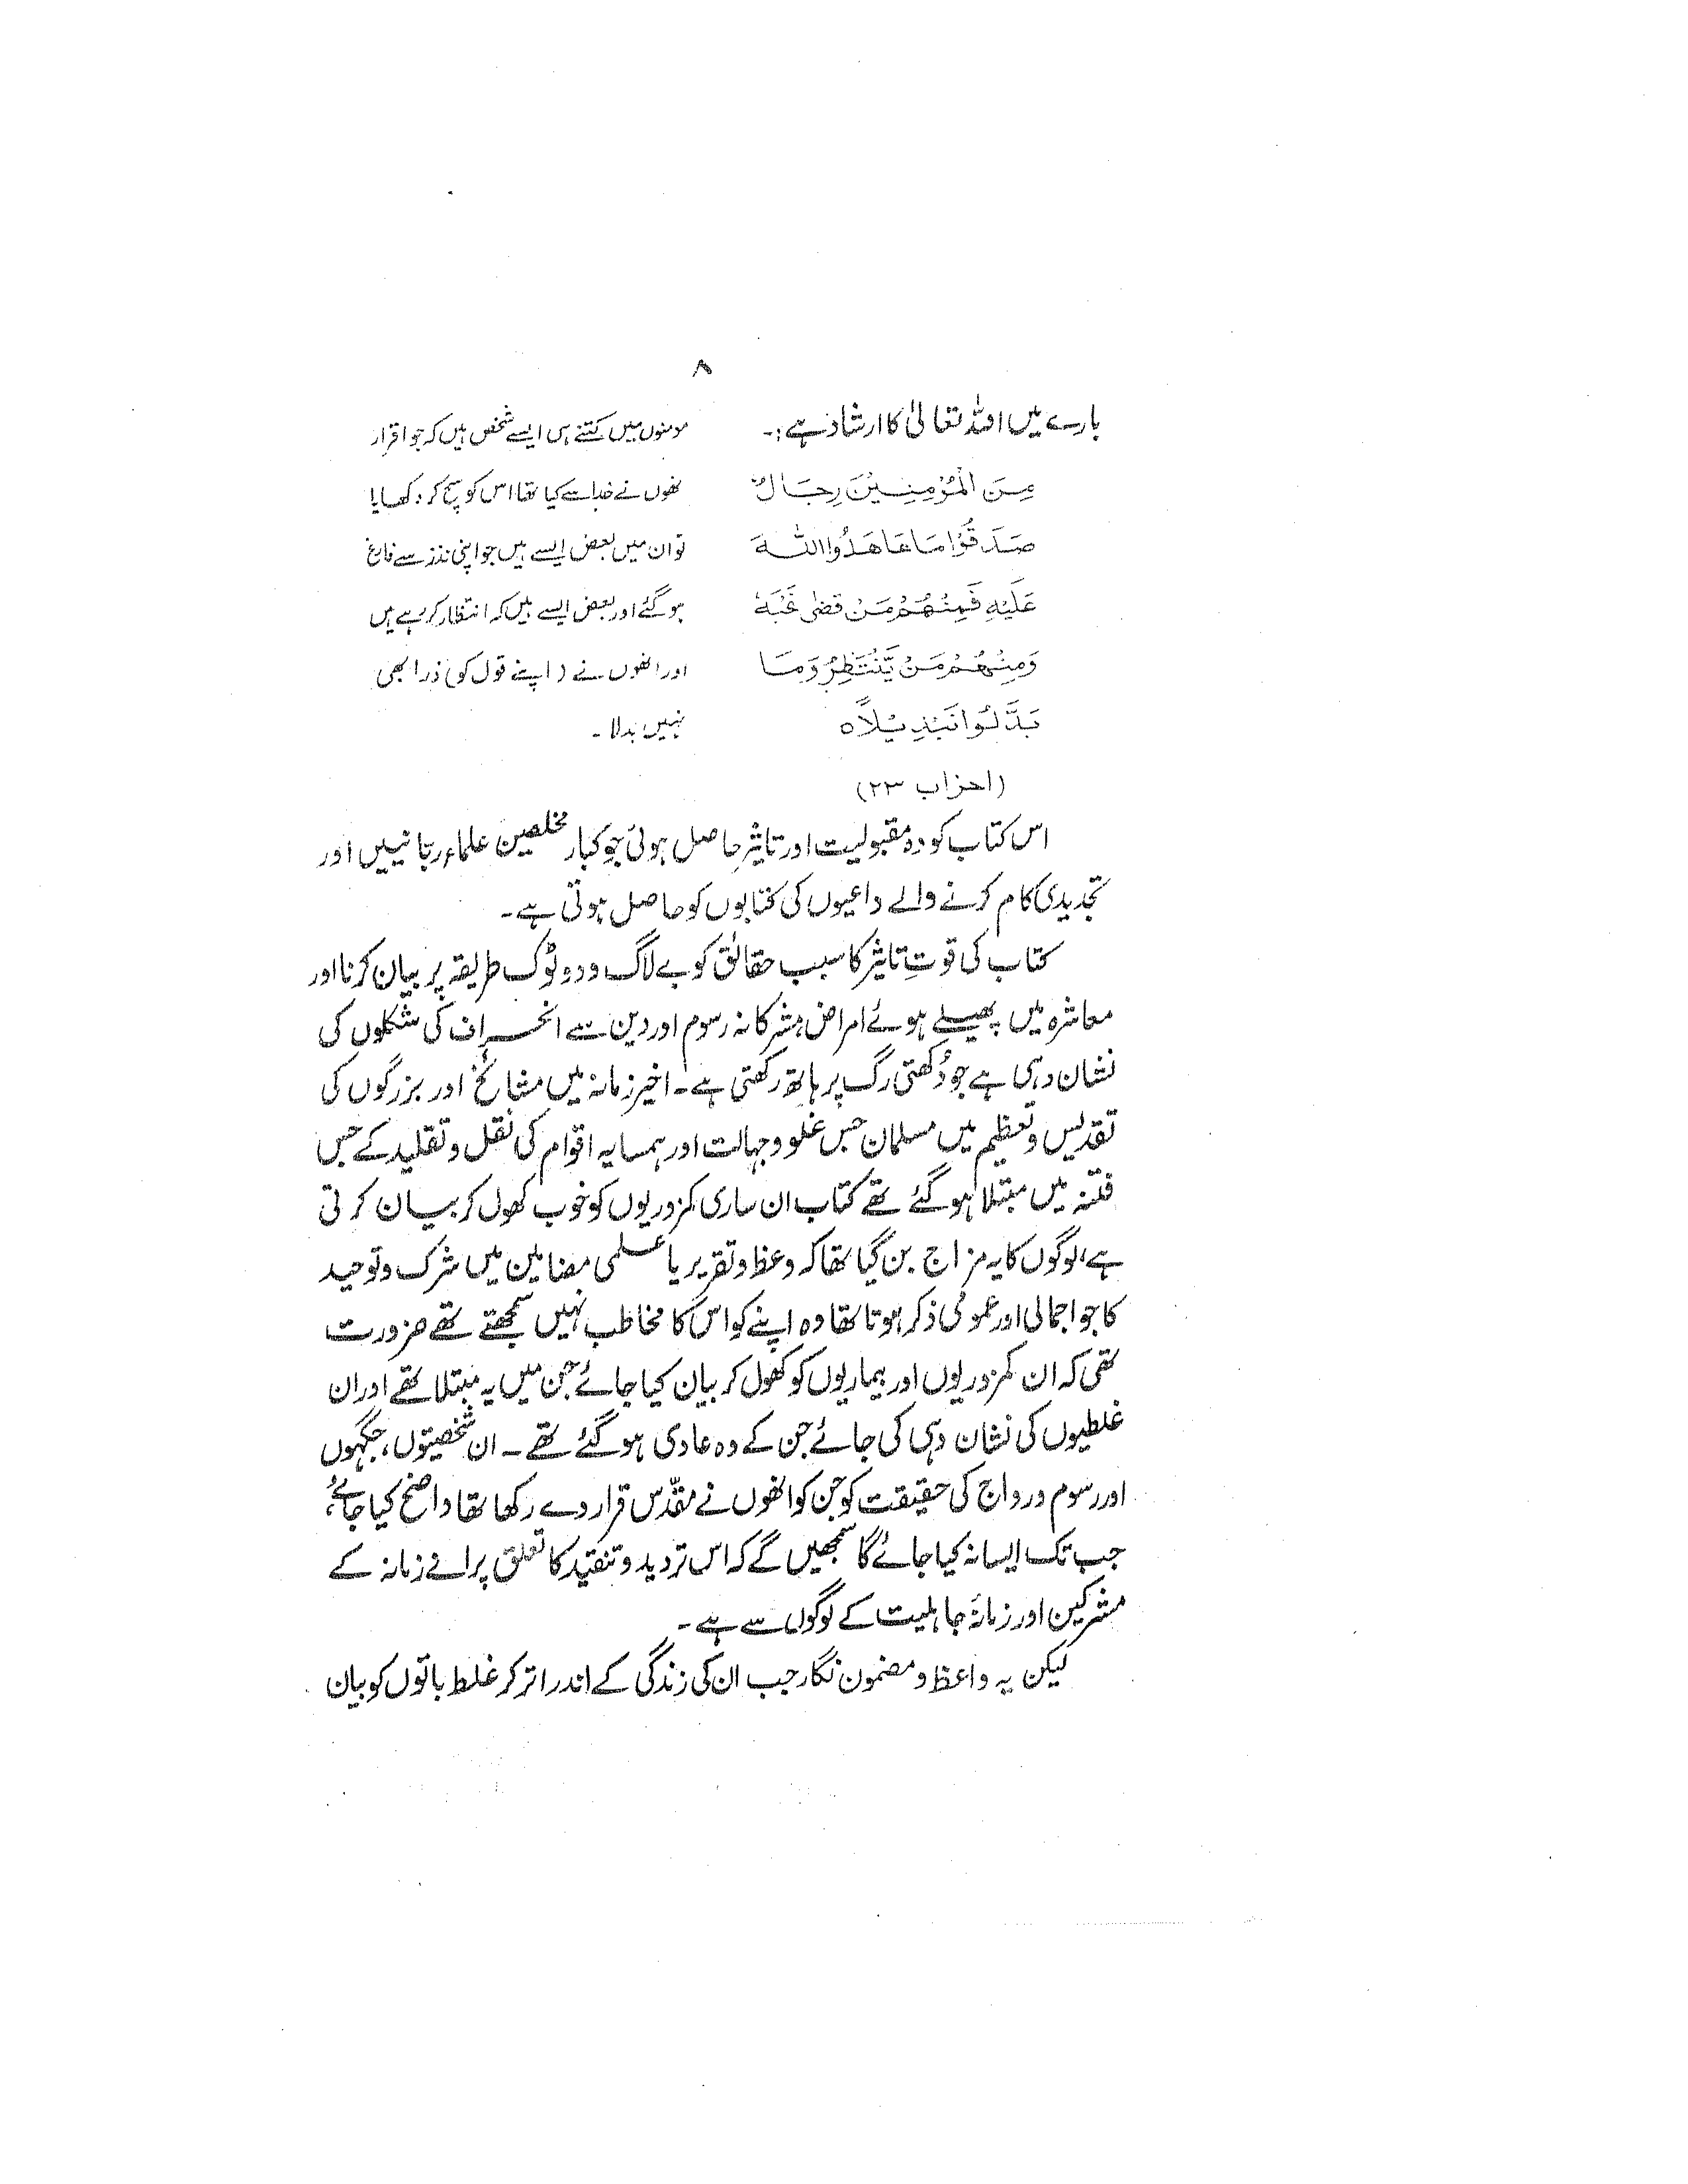 ۸
بارے میں اللہ تعالیٰ کا ارشاد ہے :۔
مِنَ الْمُؤْمِنِيْنَ رِجَالٌ
صَدَقُوْا مَا عَاهَدُوا اللّٰهَ
عَلَيْهِ فَمِنْهُمْ مَنْ قَضٰى نَحْبَهٗ
وَمِنْهُمْ مَنْ يَّنْتَظِرُ وَمَا
بَدَّلُوْا تَبْدِيْلًا ہ
(احزاب ۲۳)
مومنوں میں کتنے ہی ایسے شخص ہیں کہ جو اقرار
انھوں نے خدا سے کیا تھا اس کو سچ کر دکھایا
تو ان میں بعض ایسے ہیں جو اپنی نذر سے فارغ
ہوگئے اور بعض ایسے ہیں کہ انتظار کر رہے ہیں
اور انھوں نے (اپنے قول کو) ذرا بھی
نہیں بدلا ۔
اس کتاب کو وہ مقبولیت اور تاثیر حاصل ہوئی جو کبار مخلصین علماء ربانیین اور
تجدیدی کام کرنے والے داعیوں کی کتابوں کو حاصل ہوتی ہے ۔
کتاب کی قوتِ تاثیر کا سبب حقائق کو بے لاگ و دو ٹوک طریقہ پر بیان کرنا اور
معاشرہ میں پھیلے ہوئے امراض، مشرکانہ رسوم اور دین سے انحراف کی شکلوں کی
نشان دہی ہے جو دُکھتی رگ پر ہاتھ رکھتی ہے ۔ اخیر زمانہ میں مشائخ اور بزرگوں کی
تقدیس و تعظیم میں مسلمان جس غلو و جہالت اور ہمسایہ اقوام کی نقل و تقلید کے جس
فتنہ میں مبتلا ہوگئے تھے کتاب ان ساری کمزوریوں کو خوب کھول کر بیان کرتی
ہے، لوگوں کا یہ مزاج بن گیا تھا کہ وعظ و تقریر یا علمی مضامین میں شرک و توحید
کا جو اجمالی اور عمومی ذکر ہوتا تھا وہ اپنے کو اس کا مخاطب نہیں سمجھتے تھے ضرورت
تھی کہ ان کمزوریوں اور بیماریوں کو کھول کر بیان کیا جائے جن میں یہ مبتلا تھے اور ان
غلطیوں کی نشان دہی کی جائے جن کے وہ عادی ہوگئے تھے ۔ ان شخصیتوں، جگہوں
اور رسوم و رواج کی حقیقت کو جن کو انھوں نے مقدّس قرار دے رکھا تھا واضح کیا جائے،
جب تک ایسا نہ کیا جائے گا سمجھیں گے کہ اس تردید و تنقید کا تعلق پرانے زمانہ کے
مشرکین اور زمانۂ جاہلیت کے لوگوں سے ہے ۔
لیکن یہ واعظ و مضمون نگار جب ان کی زندگی کے اندر اتر کر غلط باتوں کو بیان